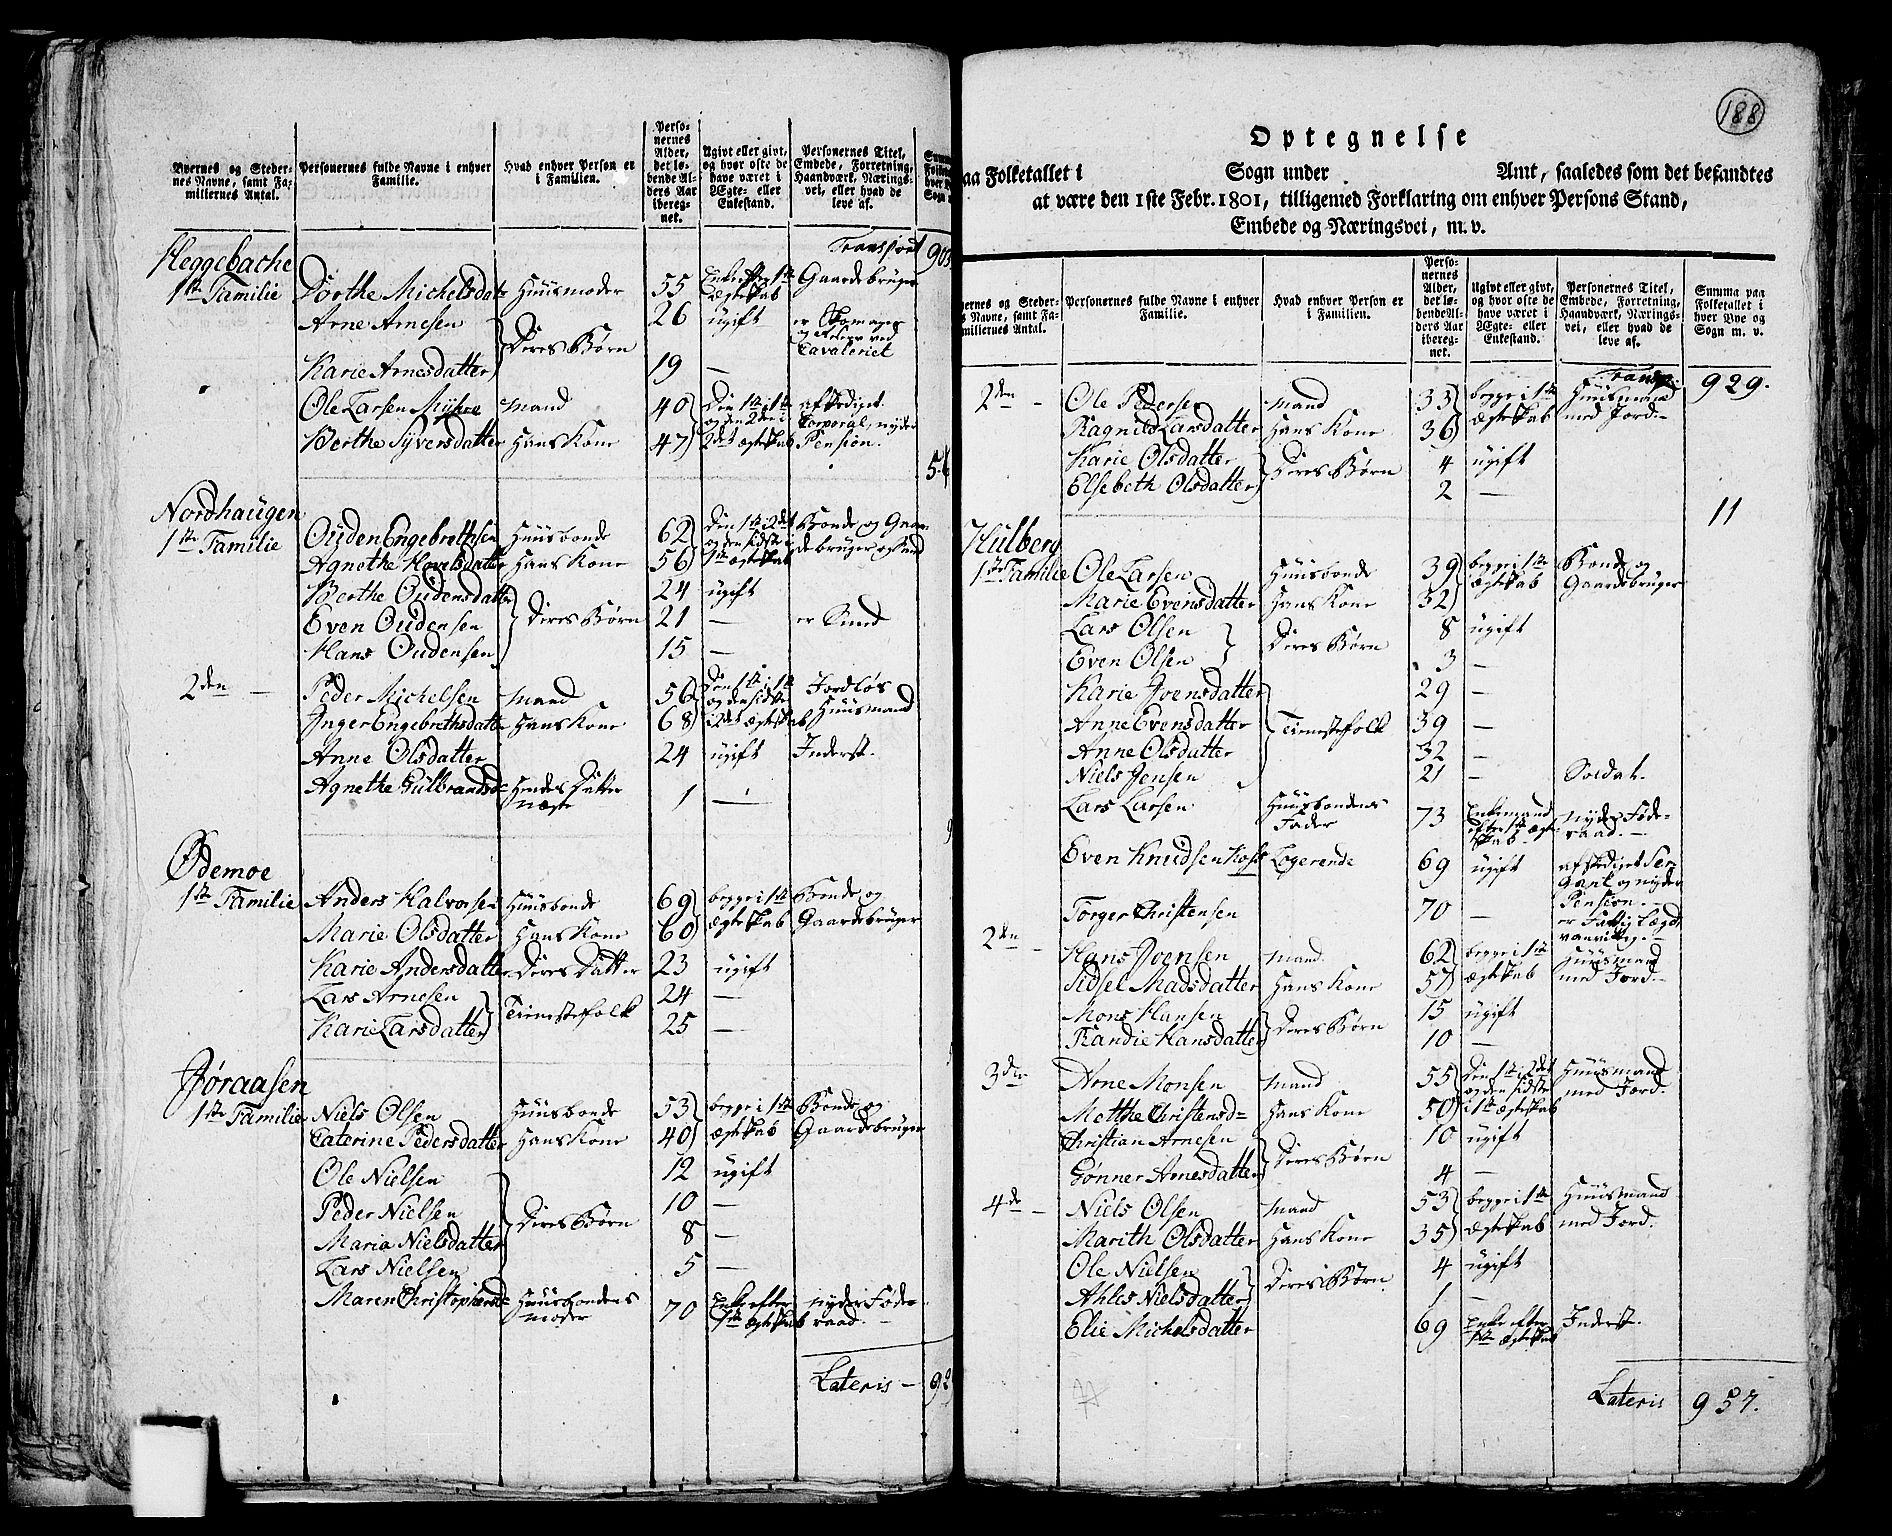 Byernes og Steder-
nes Navne, samt Fa-
miliernes Antal.
Personernes fulde Navne i enhver
Familie.
Hvad enhver Person er
i Familien.
Perso-
nernes
Alder,
det lø-
bende Al-
ders Aar
ibereg-
net.
Ugivt eller givt,
og hvor ofte de
have været i
Ægte- eller
Enkestand.
Personernes Titel,
Embede, Forretning,
Haandværk, Nærings-
vei, eller hvad de
leve af.
Transport
Heggebache
1ste Familie Dorthe Michelsdat= Huusmoder 55 Enke efter 1te Ægteskab Gaardebruger
Arne Arnesen 26 ugift
Deres Børn
Cavaleriet
Karie Arnesdatter 19 —
Ole Larsen Mÿhre Mand 40 Den 1te i 1te afskediget
og den 2den i Corporal, nyder
Berthe Siversdatter Hans Kone 47 2det Ægteskab Pension.
56
Nordhaugen
1ste Familie Ouden Engebrethsen Huusbonde 62 Den 1te i 2det Bonde og Gaar-
og den sidste i
Agnethe Hovelsdatter Hans Kone 56 1te Ægteskab debruger
Berthe Oudensdatter 24 ugift
Even Oudensen Deres Børn 21 — er Smed
Hans Oudensen 15 —
2den — Peder Michelsen Mand 56 Den 1te i 1te Jordløs
og den sidste
Inger Engebrethsdatte= Hans Kone 68 i 2det Ægteskab Huusmand
Anne Olsdatter 24 ugift Inderst.
Agnethe Gulbrandsd= Hendes Datter
1 —
Ødemoe
1ste Familie Anders Halvorsen Huusbonde 69 begge i 1te Bonde og
Marie Olsdatter Hans Kone 60 Ægteskab Gaardebruger
Karie Andersdatter Deres Datter 23 ugift
Lars Arnesen 24 —
Tienestefolk
Karie Larsdatter 25 —
Jøraasen
1ste Familie Niels Olsen Huusbonde 53 begge i 1te Bonde og
Caterine Pedersdatter Hans Kone 40 Ægteskab Gaardebruger
Ole Nielsen 12 ugift
Peder Nielsen 10 —
Deres Børn
Maria Nielsdatter 8 —
Lars Nielsen 5 —
Maren Christophersd= Huusbondens 70 Enke efter nyder Føde-
Moder 1te Ægteskab raad. —
Lateris —
188
Optegnelse
paa Folketallet i Sogn under Amt, saaledes som det befandtes
at være den 1ste Febr. 1801, tilligemed Forklaring om enhver Persons Stand,
Embede og Næringsvei, m. v.
Personernes fulde Navne i enhver
Familie.
Hvad enhver Person er
i Familien.
Perso-
nernes
Alder,
det lø-
bende Al-
ders Aar
ibereg-
net.
Ugivt eller givt,
og hvor ofte de
have været i
Ægte- eller
Enkestand.
Personernes Titel,
Embede, Forretning,
Haandværk, Nærings-
vei, eller hvad de
leve af.
Summa paa
Folketallet i
hver Bye og
Sogn m. v.
Transp. 929.
2den — Ole Pedersen Mand 33 begge i 1te Huusmand
Ragnild Larsdatter Hans Kone 36 Ægteskab med Jord. —
Karie Olsdatter 4 ugift
Deres Børn
Elsebeth Olsdatter 2 —
11
Hulberg
1ste Familie Ole Larsen Huusbonde 39 begge i 1te Bonde og
Marie Evensdatter Hans Kone 32 Ægteskab Gaardebruger
Lars Olsen 8 ugift
Deres Børn
Even Olsen 3 —
Karie Joensdatter 29 —
Anne Evensdatter Tienestefolk 39 —
Anne Olsdatter 32 —
Niels Jensen 21 — Soldat.
Lars Larsen Huusbondens Fader 73 Enkemand efter 1te Ægteskab nyder Føde-
raad. —
Even Knudsen Logerende 69 ugift afskediget Ser-
gant og nyder
Pension. —
Torger Christensen 70 — er Fattig Lægd
vanvittig. —
2den — Hans Joensen Mand 62 begge i 1te Huusmand
Sidsel Madsdatter Hans Kone 57 Ægteskab med Jord. —
Mons Hansen 15 ugift
Deres Børn
Randie Hansdatter 10 —
3die Arne Monsen Mand 55 Den 1te i 2det Huusmand
og den sidste med Jord.
Metthe Christensd= Hans Kone 50 i 1te Ægteskab
Christian Arnesen 10 ugift
Deres Børn
Gønner Arnesdatter 4 —
4de — Niels Olsen Mand 53 begge i 1te Huusmand
Marith Olsdatter Hans Kone 35 Ægteskab med Jord.
Ole Nielsen 4 ugift
Deres Børn
Ahles Nielsdatter 1 —
Elie Michelsdatter 69 Enke efter Inderst.
1te Ægteskab
Lateris 957.